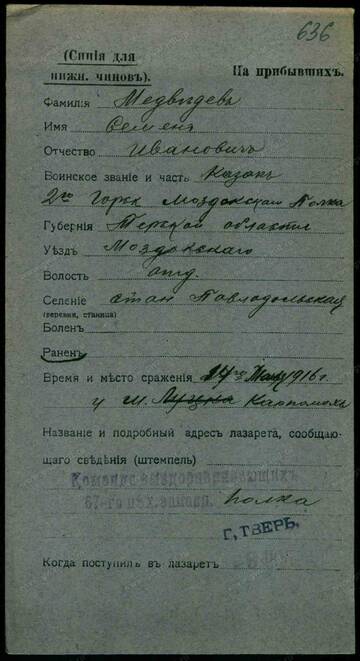 636
(Синія для
нижн. чиновъ).
На прибывшихъ.
Фамилія Медвѣдевъ
Имя Семенъ
Отчество Ивановичъ
Воинское званіе и часть Казакъ
2го Горск Моздокскаго Полка
Губернія Терской области
Уѣздъ Моздокскаго
Волость отд.
Селеніе стан Павлодольская
(деревня, станица)
Боленъ
Раненъ
Время и мѣсто сраженія 1916 г.
у м. Луцка
Названіе и подробный адресъ лазарета, сообщаю-
щаго свѣдѣнія (штемпель)
Команда выздоравливающихъ
67-го пѣх. запасн. полка
Г. ТВЕРЬ.
Когда поступилъ въ лазаретъ